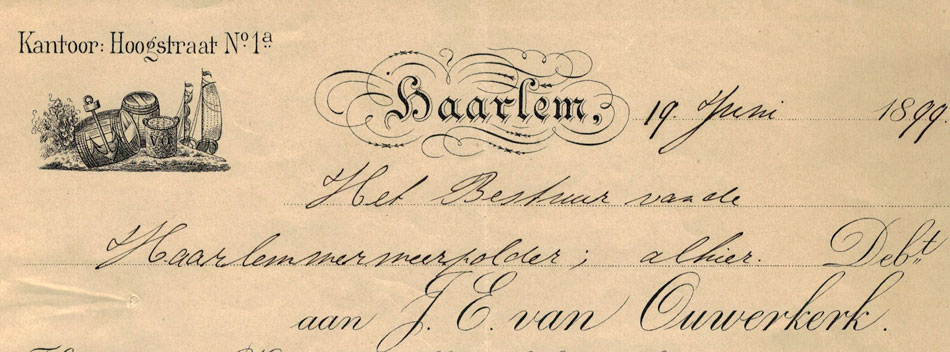 Kantoor: Hoogstraat No. 1a
Haarlem, 19. Juni 1899.
Het Bestuur van de
Haarlemmermeerpolder; alhier. Debt.
aan J. E. van Ouwerkerk.